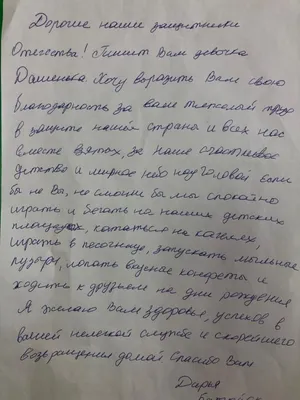 Дорогие наши защитники
Отечества! Пишет Вам девочка
Дашенька Хочу выразить Вам свою
благодарность за ваш тяжелый труд
в защите нашей страны и всех нас
вместе взятых, за наше счастливое
детство и мирное небо над головой если
бы не Вы, не смогли бы мы спокойно
играть и бегать на наших детских
площадках, кататься на качелях,
играть в песочнице, запускать мыльные
пузыри, лопать вкусные конфеты и
ходить к друзьям на дни рождения
Я желаю Вам здоровья, успехов в
вашей нелегкой службе и скорейшего
возвращения домой Спасибо Вам
Дарья